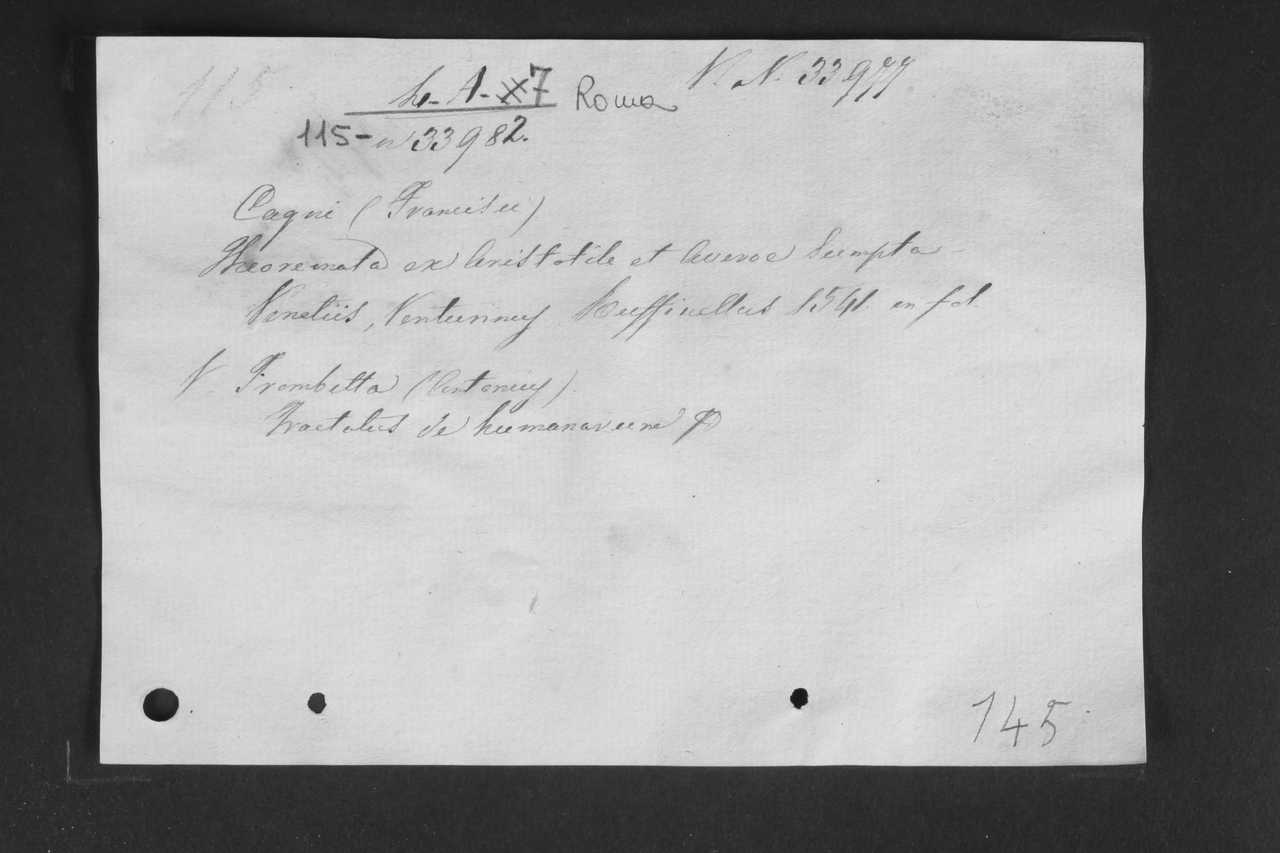 115
h. A - 7 Roma
V. N. 33977
115 - n 33982.
Cagni (Francisci)
Theoremata ex Aristotile et Averoe Sumpta
Venetiis, Venturinus Ruffinellus 1541 in fol.
V. Trombetta (Antonius)
Tractatus de humanarum
145